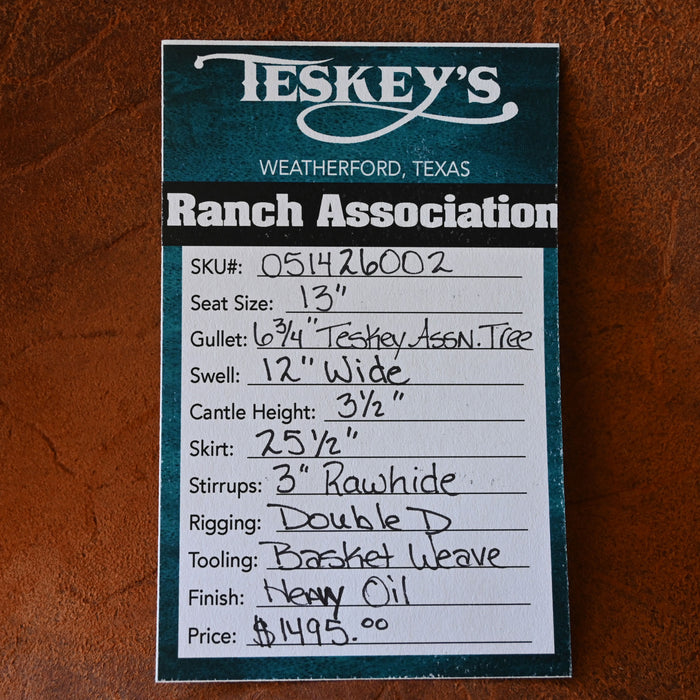 TESKEY'S
WEATHERFORD, TEXAS
Ranch Association
SKU#: 051426002
Seat Size: 13"
Gullet: 6 3/4" Teskey Assn. Tree
Swell: 12" Wide
Cantle Height: 3 1/2"
Skirt: 25 1/2"
Stirrups: 3" Rawhide
Rigging: Double D
Tooling: Basket Weave
Finish: Heavy Oil
Price: $1495.00